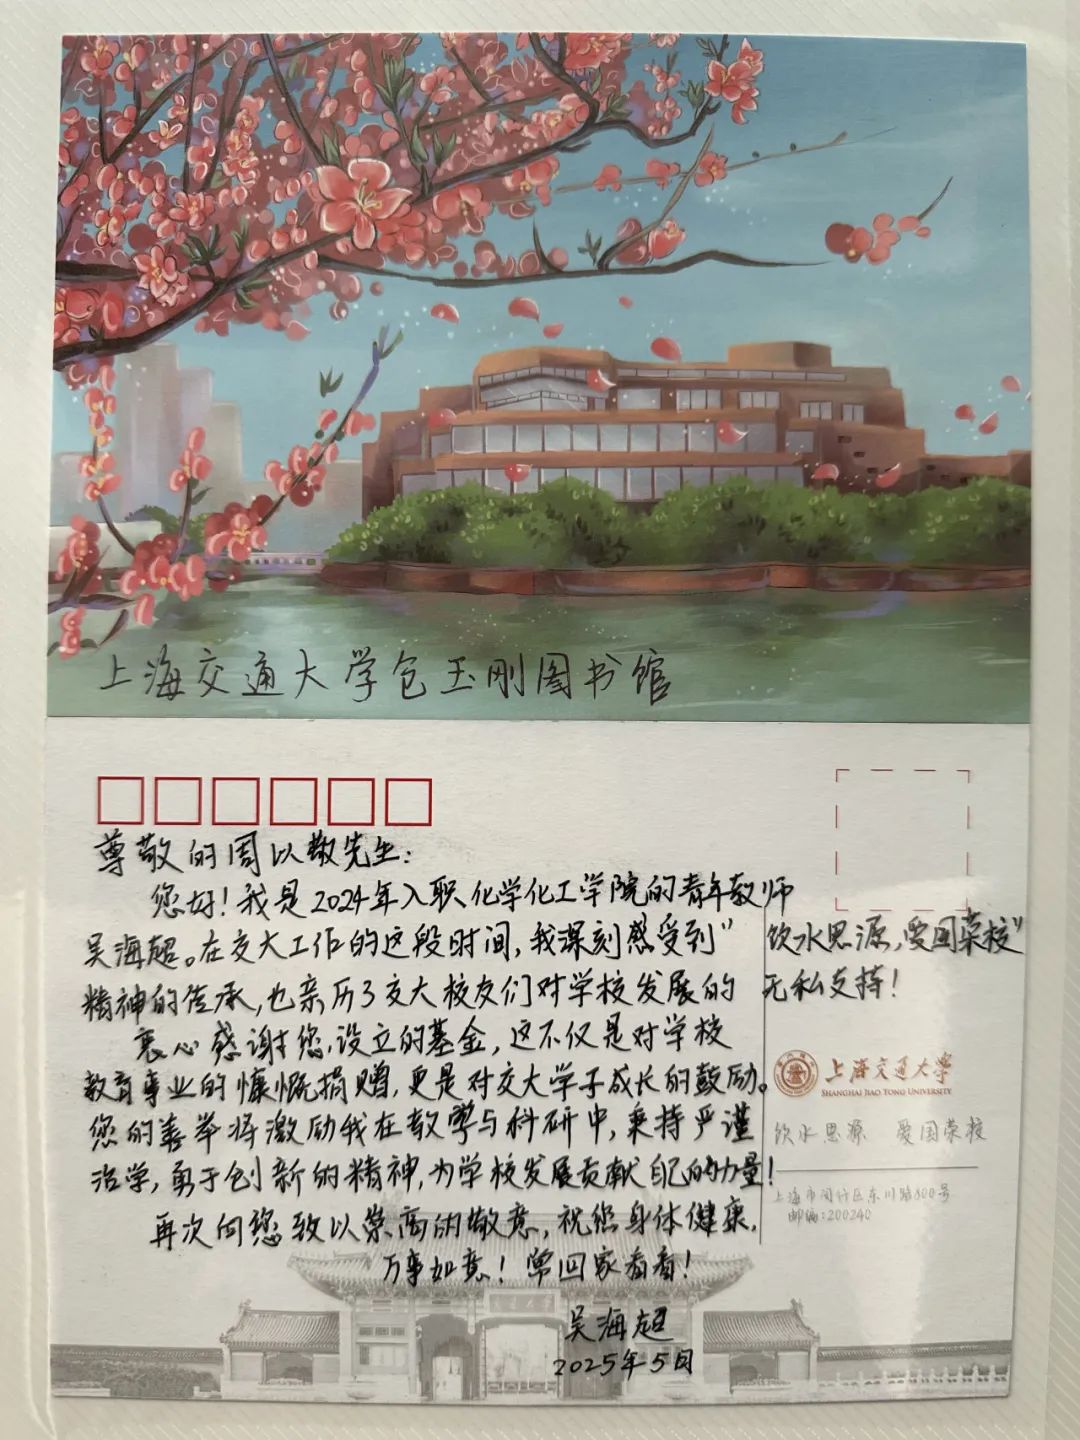 上海交通大学包玉刚图书馆
尊敬的周以敬先生：
您好！我是2024年入职化学化工学院的青年教师
吴海超。在交大工作的这段时间，我深刻感受到"饮水思源，爱国荣校"
精神的传承，也亲历了交大校友们对学校发展的无私支持！
衷心感谢您设立的基金，这不仅是对学校
教育事业的慷慨捐赠，更是对交大学子成长的鼓励。
您的善举将激励我在教学与科研中，秉持严谨
治学，勇于创新的精神，为学校发展贡献自己的力量！
再次向您致以崇高的敬意，祝您身体健康，
万事如意！常回家看看！
吴海超
2025年5月
上海交通大学
SHANGHAI JIAO TONG UNIVERSITY
饮水思源 爱国荣校
上海市闵行区东川路800号
邮编:200240